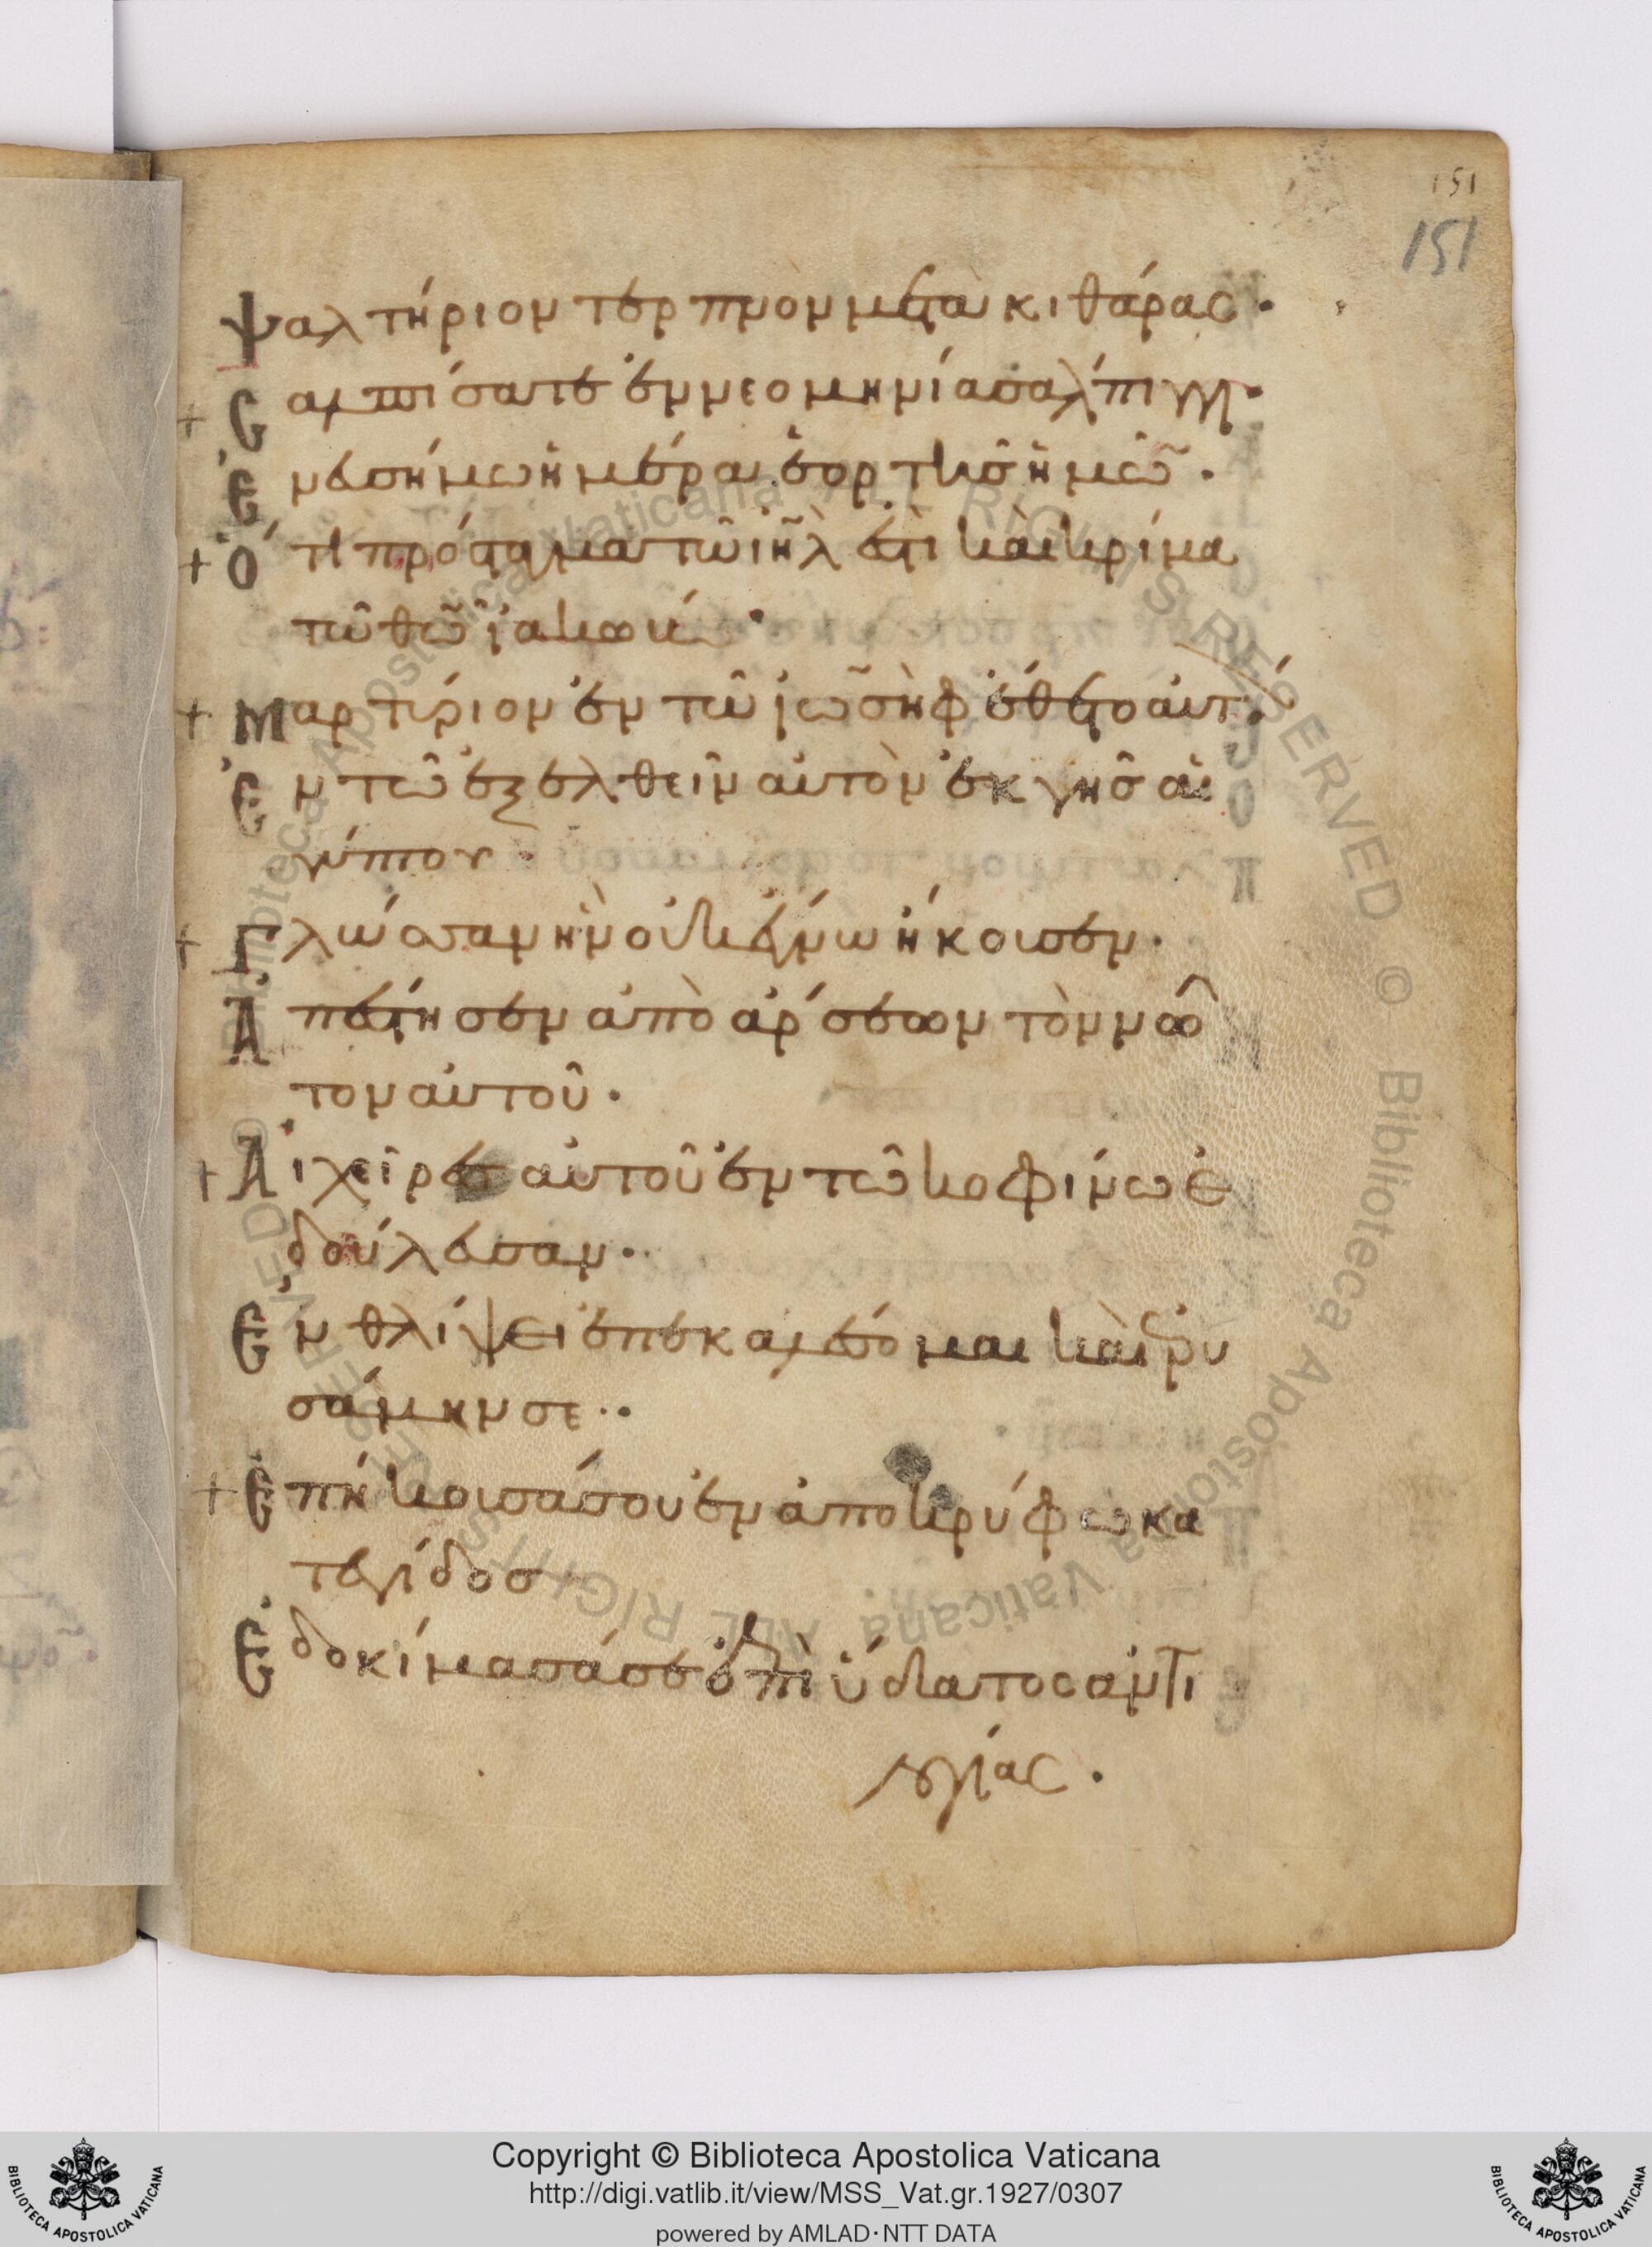 151
151
Ψαλτήριον τερπνὸν μετὰ κιθάρας·
Σαλπίσατε ἐν νεομηνία σάλπιγγι·
Ἐν εὐσήμω ἡμέρα ἑορτῆς ἡμῶ̃·
Ὅτι πρόσταγμα τῶ ἰη̃λ ἐστὶ καὶ κρίμα
τῶ θῶ̃ ἰακώβ·
Μαρτύριον ἐν τῶ ἰωσὴφ ἔθετο αὐτό
Ἐν τῶ ἐξελθεῖν αὐτὸν ἐκ γῆς αἰ
γύπτου·
Γλώσσαν ἣν οὐκ ἔγνω ἤκουσεν·
Ἀπέστησεν ἀπὸ ἄρσεων τὸν νῶ
τον αὐτοῦ·
Αἱ χεῖρες αὐτοῦ ἐν τῶ κοφίνω ἐ
δούλευσαν·
Ἐν θλίψει ἐπεκαλέσω με καὶ ἐρρυ
σάμην σε··
Ἐπήκουσά σου ἐν ἀποκρύφω κα
ταιγίδος
Ἐδοκίμασά σε ἐπὶ ὕδατος ἀντι
λογίας·
Copyright © Biblioteca Apostolica Vaticana
http://digi.vatlib.it/view/MSS_Vat.gr.1927/0307
powered by AMLAD·NTT DATA